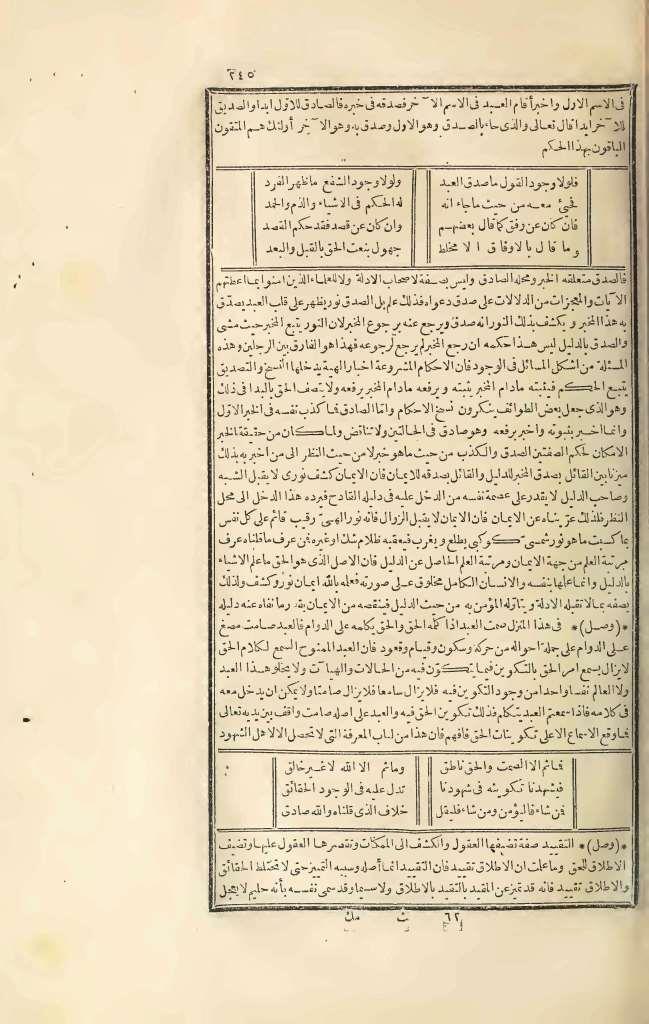 ٢٤٥
فى الاسم الاول واخبر أقام العبد فى الاسم الا ٓخر فصدقه فى خبره فالصادق للاول ابدا والصديق
للا ٓخر ابدا قال تعالى والذى جاء بالصدق وهو الاول وصدق به وهو الا ٓخر أولئك هم المتقون
الباقون بهذا الحكم
فلولا وجود القول ما صدق العبد ولولا وجود الشفع ما ظهر الفرد
فجئ معه من حيث ما جاء انه له الحكم فى الاشياء والذم والحمد
فان كان عن رفق كما قال بعضهم وان كان عن قصد فقد حكم القصد
وما قال بالاوفاق الا مخلط جهول بنعت الحق بالقبل والبعد
فالصدق متعلقه الخبر ومحله الصادق وليس بصفة لاصحاب الادلة ولا للعلماء الذين امنوا بما اعطتهم
الا ٓيات والمعجزات من الدلالات على صدق دعواه فذلك علم بل الصدق نور يظهر على قلب العبد يصدّق
به هذا المخبر و يكشف بذلك النور انه صدق ويرجع عنه برجوع المخبر لان النور يتبع المخبر حيث مشى
والصدق بالدليل ليس هذا حكمه ان رجع المخبر لم يرجع لرجوعه فهذا هو الفارق بين الرجلين وهذه
المسئلة من اشكل المسائل فى الوجود فان الاحكام المشروعة اخبار الهية يدخلها النسخ والتصديق
يتبع الحكم فيثبته مادام المخبر يثبته ويرفعه مادام المخبر يرفعه ولا يتصف الحق بالبدا فى ذلك
وهو الذى جعل بعض الطوائف ينكرون نسخ الاحكام وامّا الصادق فما كذب نفسه فى الخبر الاول
وانما اخبر بثبوته واخبر برفعه وهو صادق فى الحالتين ولا تناقض ولما كان من حقيقة الخبر
الامكان لحكم الصفتين الصدق والكذب من حيث ما هو خبر لا من حيث النظر الى من اخبر به بذلك
ميزنا بين القائل بصدق المخبر للدليل والقائل بصدقه للايمان فان الايمان كشف نورى لا يقبل الشبه
وصاحب الدليل لا يقدر على عصمة نفسه من الدخل عليه فى دليله القادح فيرده هذا الدخل الى محل
النظر فلذلك عرّيناه عن الايمان فان الايمان لا يقبل الزوال فانه نور الهىّ رقيب قائم على كل نفس
بما كسبت ما هو نور شمسىّ كوكبى يطلع ويغرب فيعقبه ظلام شك او غيره فمن عرف ما قلناه عرف
مرتبة العلم من جهة الايمان ومرتبة العلم الحاصل عن الدليل فان الاصل الذى هو الحق ما علم الاشياء
بالدليل وانما علمها بنفسه والانسان الكامل مخلوق على صورته فعلمه بالله ايمان نور وكشف ولذلك
يصفه بما لا تقبله الادلة و يتأوله المؤمن به من حيث الدليل فينقصه من الايمان بقدر ما نفاه عنه دليله
*(وصل)* فى هذا المنزل صمت العبد اذا كلّمه الحق والحق يكلمه على الدوام فالعبد صامت مصغ
على الدوام على جملة احواله من حركة وسكون وقيام وقعود فان العبد الممنوح السمع لكلام الحق
لا يزال يسمع امر الحق بالتكوين فيما يتكوّن فيه من الحالات والهيا ٓت ولا يخلو هذا العبد
ولا العالم نفسا واحدا من وجود التكوين فيه فلا يزال سامعا فلا يزال صامتا ولا يمكن ان يدخل معه
فى كلامه فاذا سمعتم العبد يتكلم فذلك تكوين الحق فيه والعبد على اصله صامت واقف بين يديه تعالى
فما وقع الاسماع الا على تكوينات الحق فافهم فان هذا من لباب المعرفة التى لا تحصل الا لاهل الشهود
فما ثم الا الصمت والحق ناطق وما ثم الا الله لا غير خالق
فيشهدنا تكوينه فى شهودنا تدل عليه فى الوجود الحقائق
فمن شاء فليؤمن ومن شاء فليقل خلاف الذى قلناه والله صادق
*(وصل)* التقييد صفة تضيفها العقول والكشف الى الممكنات وتقصرها العقول عليها وتضيف
الاطلاق للحق وما علمت ان الاطلاق تقييد فان التقييد انما أصله وسببه التمييز حتى لا تختلط الحقائق
والاطلاق تقييد فانه قد تميز عن المقيد بالتقيد بالاطلاق ولا سيما وقد سمى نفسه بأنه حليم لا يعجل
٦٢ ث مك